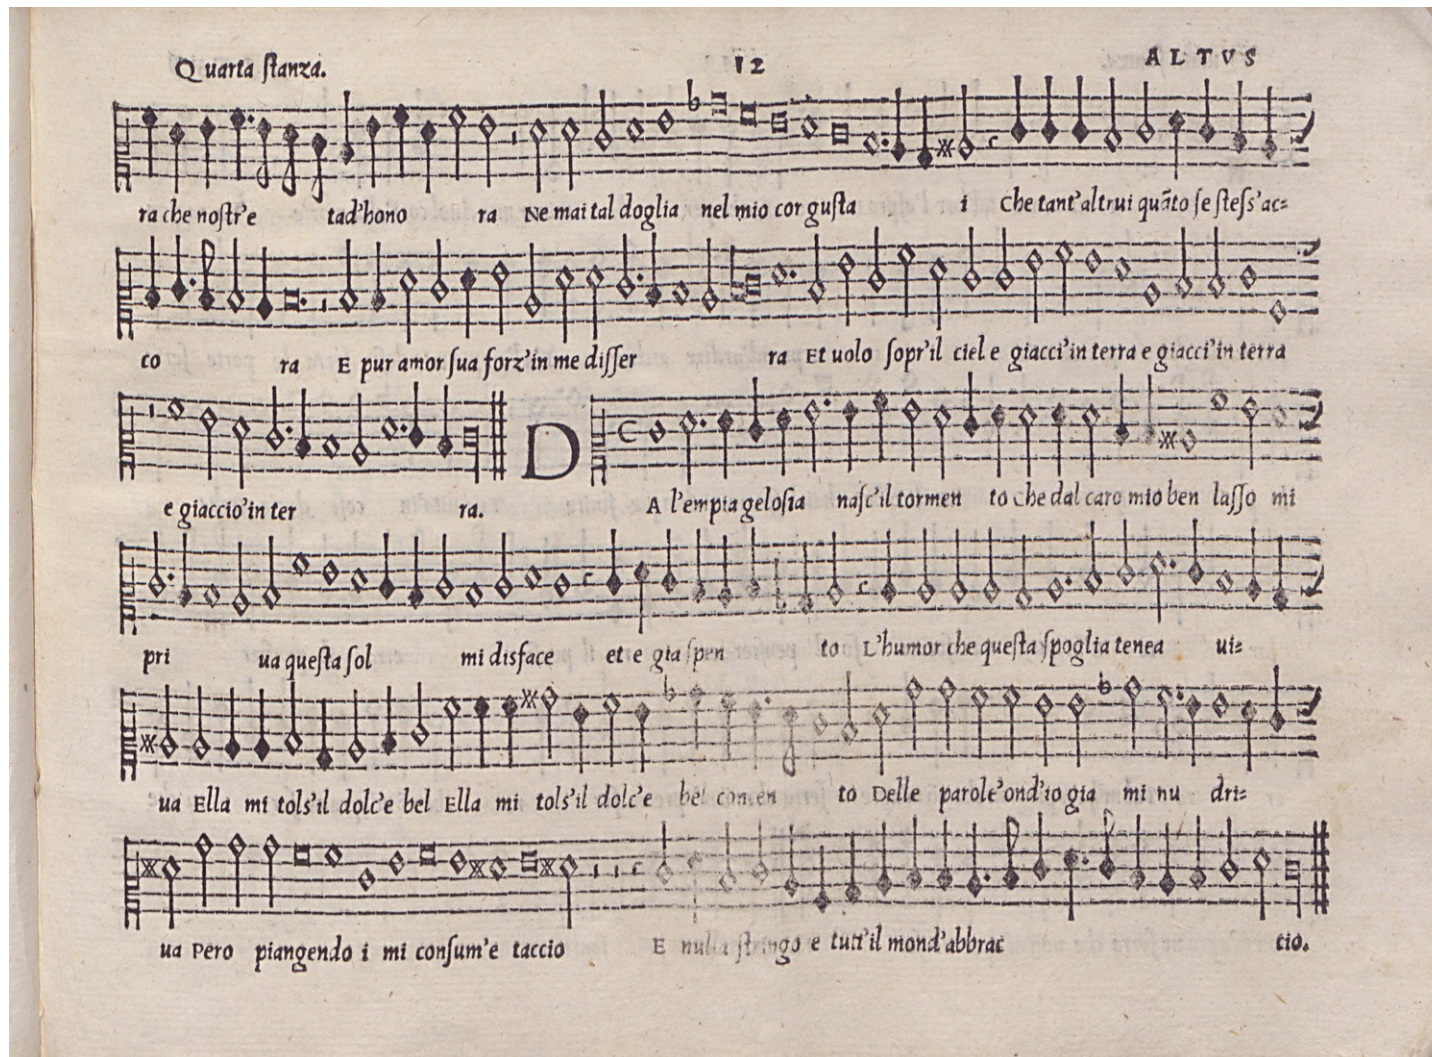 Quarta ſtanza. 12 ALTVS
ra che noſtr'e tad'hono ra Ne mai tal doglia nel mio cor guſta i Che tant'altrui quãto ſe ſteſs'ac=
co ra E pur amor ſua forz'in me diſſer ra Et uolo ſopr'il ciel e giacci'in terra e giacci'in terra
e giaccio'in ter ra. DA l'empia geloſia naſc'il tormen to che dal caro mio ben laſſo mi
pri ua queſta ſol mi disface et e gia ſpen to L'humor che queſta ſpoglia tenea ui=
ua Ella mi tols'il dolc'e bel Ella mi tols'il dolc'e bel concen to Delle parole'ond'io gia mi nu dri=
ua Pero piangendo i mi conſum'e taccio E nulla ſtringo e tutt'il mond'abbrac cio.